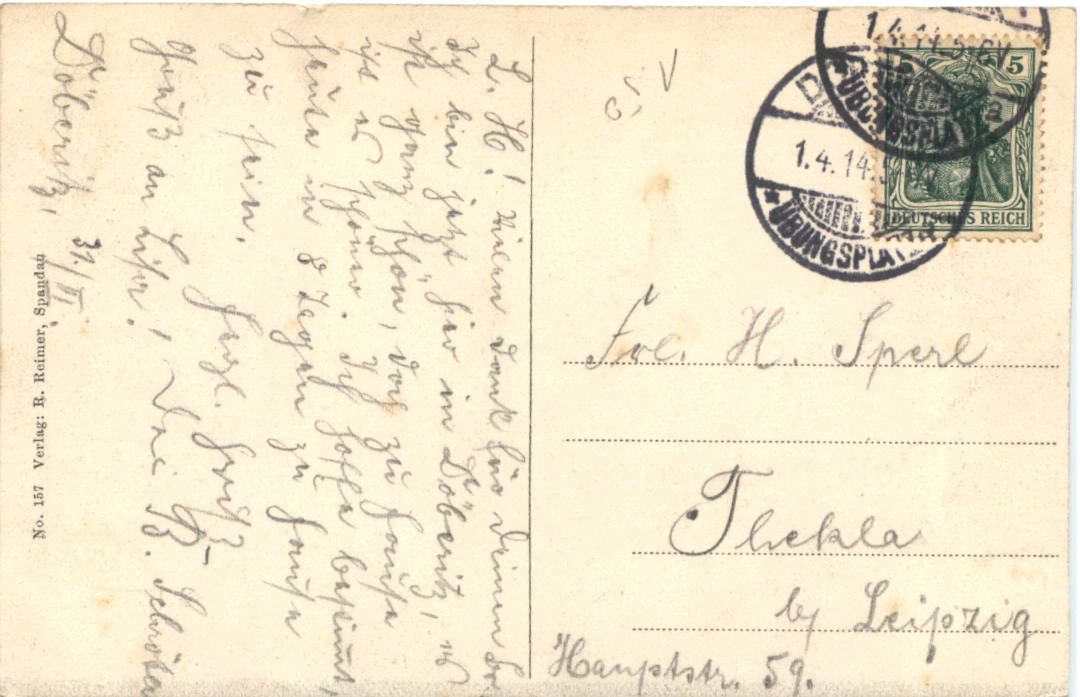 Döberitz,
31/III.
L. H! Vielen Dank für Deinen
Ich bin jetzt hier in Döberitz, es
ist ganz schön, doch zu Hause
ist es schöner. Ich hoffe bestimmt,
heute in 8 Tagen zu Hause
zu sein.
Herzl.
Gruß an Liesa! Dein B. Schröter
No. 157 Verlag: R. Reimer, Spandau
1.4.14.5-6V
ÜBUNGSPLATZ
D
1.4.14.5-6V
*ÜBUNGSPLATZ
5
DEUTSCHES REICH
Frl. H. Sperl
Thekla
by Leipzig
Hauptstr. 59.